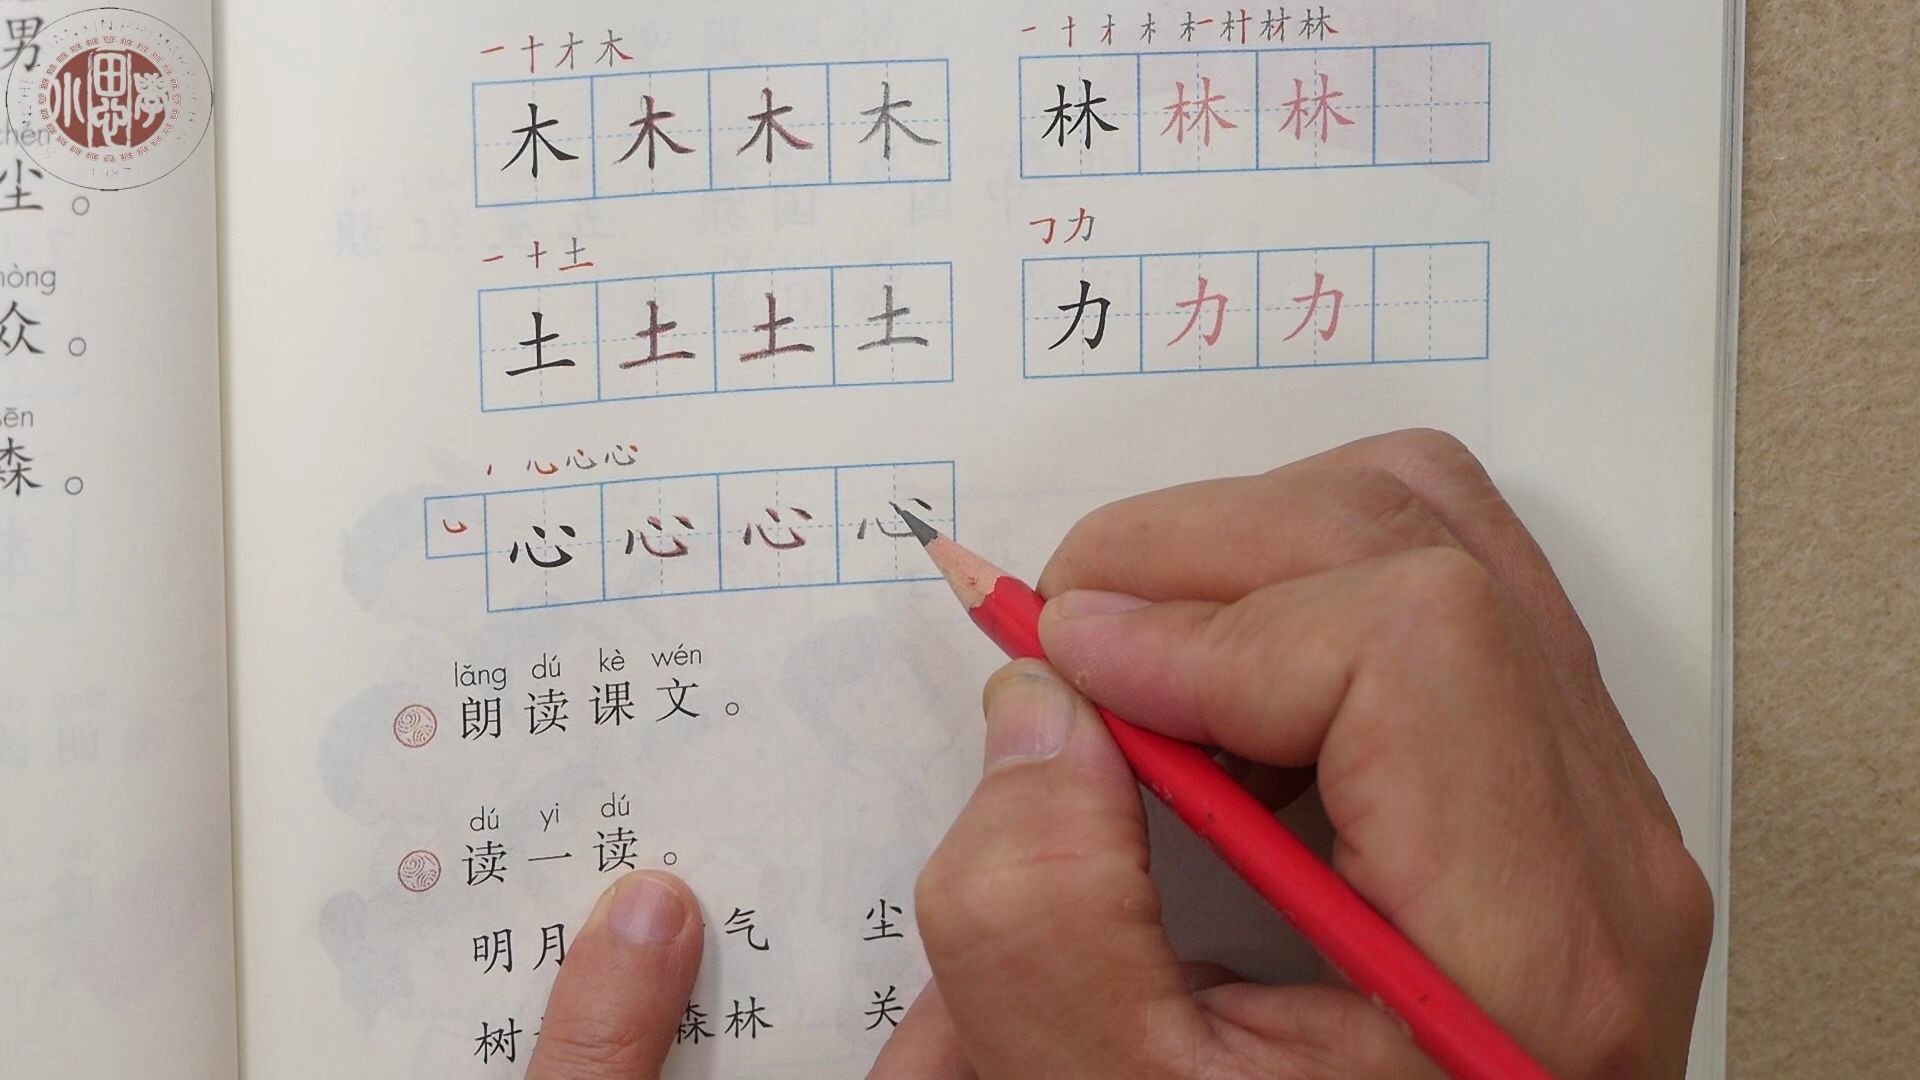 男
chén
尘。
众。
sēn
森。
一 十 才 木
木 木 木 木
林 林 林
一 十 土
土 土 土 土
㇆ 力
力 力 力
心 心 心
心 心 心 心
lǎng dú kè wén
朗读课文。
dú yi dú
读一读。
明月 气 尘
树 森林 关